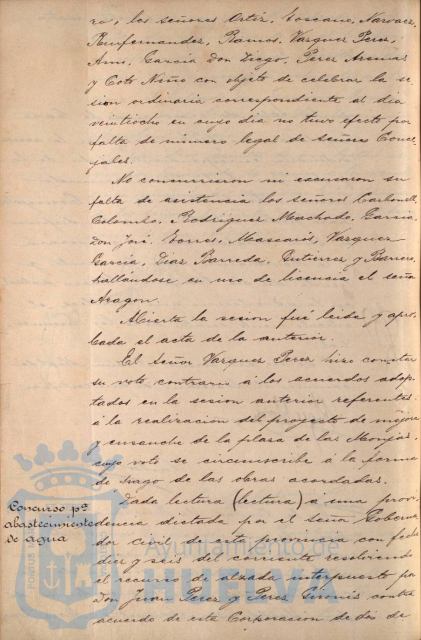 ro, los señores Ortiz, Toscano, Narvaez,
Renfernandez, Ramos, Vazquez Perez,
García Don Diego, Perez Arenas
y Coto Niño con objeto de celebrar la se-
sion ordinaria correspondiente al dia
veintiocho en cuyo dia no tuvo efecto por
falta de número legal de señores Conce-
jales.
No concurrieron ni escusaron su
falta de asistencia los señores Carbonell,
Colombo, Rodriguez Machado, Garcia
Don José, Torres, Mascarós, Vazquez
García, Diaz Barreda, Gutierrez y Barrero
hallándose en uso de licencia el señor
Aragon.
Abierta la sesion fué leida y apro-
bada el acta de la anterior.
El Señor Vazquez Perez hizo constar
su voto contrario á los acuerdos adop-
tados en la sesion anterior referentes
á la realizacion del proyecto de mejora
y ensanche de la plaza de las Monjas,
cuyo voto se circunscribe á la forma
de pago de las obras acordadas.
Concurso pª
abastecimiento
de agua
Dada lectura (lectura) á una provi-
dencia dictada por el señor Goberna-
dor civil de esta provincia con fecha
diez y seis del corriente resolviendo
el recurso de alzada interpuesto por
Don Juan Perez y Perez Gironés contra
acuerdo de esta Corporacion de dos de
Ayuntamiento de
HUELVA